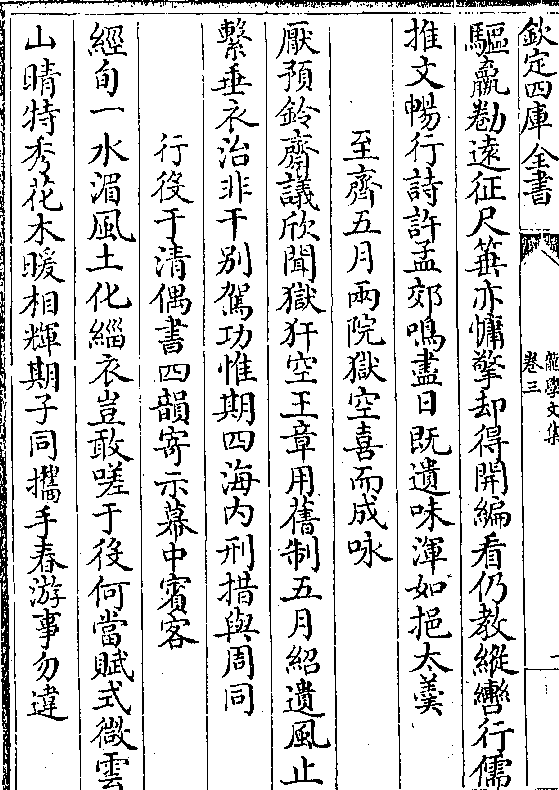 欽定四庫全書
龍學文集
卷三
驅羸勌遠征尺箠亦慵擎却得開編看仍教縱轡行儒
推文暢行詩許孟郊鳴盡日既遺味渾如挹太羹
至齊五月兩院獄空喜而成咏
厭預鈴齋議欣聞獄犴空王章用舊制五月紹遺風止
繫垂衣治非干别駕功惟期四海内刑措與周同
行役于清偶書四韻寄示幕中賓客
經旬一水湄風土化緇衣豈敢嗟于役何當賦式微雲
山晴特秀花木暖相輝期子同攜手春游事勿違